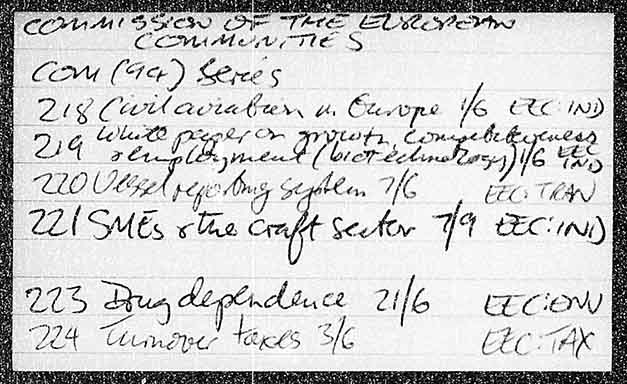 COMMISSION OF THE EUROPEAN
COMMUNITIES
COM (94) Series
218 Civil aviation in Europe 1/6 EEC:IND
219 White paper on growth, competitiveness EEC
& employment (biotechnology) 1/6 IND
220 Vessel reporting system 7/6 EEC:TRAN
221 SMEs & the craft sector 7/9 EEC:IND
223 Drug dependence 21/6 EEC:ENV
224 Turnover taxes 3/6 EEC:TAX